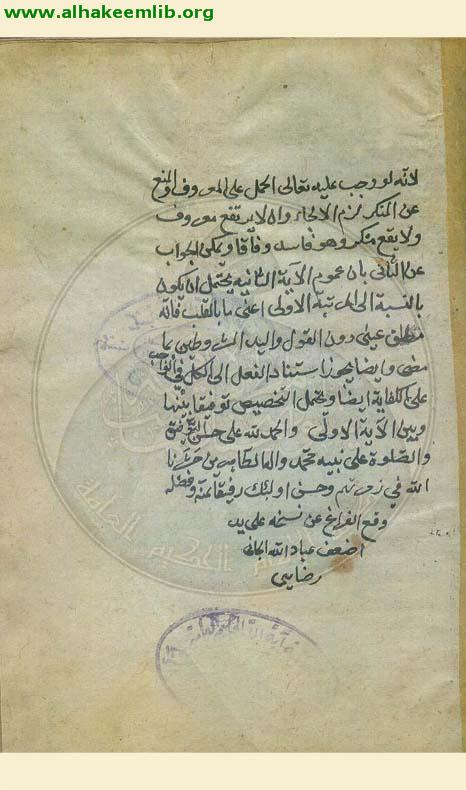 www.alhakeemlib.org
لانه لو وجب عليه تعالى الحمل على المعروف والمنع
عن المنكر لزم الالجاء وان لا يرتفع معروف
ولا يقع منكر وهو فاسد وفاقا ويمكن الجواب
عن الثاني بان عموم الآية الثانيه يحتمل ان يكون
بالنسبة الى المرتبة الاولى اعني ما بالقلب فانه
مطلق عيني دون القول واليد المشروطين بما
مضى وايضا يجوز استناد الفعل الى الكل في الواجب
على الكفاية ايضا ويحتمل التخصيص توفيقا بينها
وبين الآية الاولى والحمد لله على حسن التوفيق
والصلوة على نبيه محمد واله الطاهرين حشرنا
الله في زمرتهم وحسن اولئك رفيقا بمنه وفضله
وقع الفراغ عن نسخه على يد
اضعف عباد الله الجاني